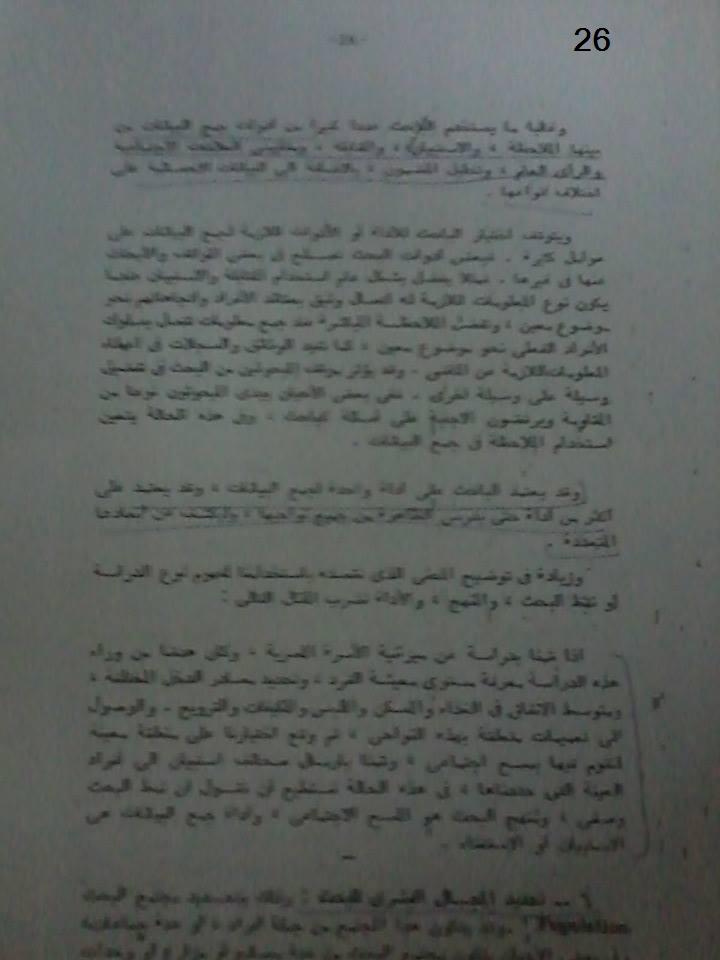 26
وغالبا ما يستخدم الباحث عددا كبيرا من أدوات جمع البيانات من
بينها الملاحظة ، والاستبيان ، والمقابلة ، ومقاييس العلاقات الاجتماعية
والرأى العام ، وتحليل المضمون ، بالاضافة الى البيانات الاحصائية على
اختلاف أنواعها .
ويتوقف اختيار الباحث للأداة أو الأدوات اللازمة لجمع البيانات على
عوامل كثيرة . فبعض أدوات البحث تصلح فى بعض المواقف والأبحاث
عنها فى غيرها . فمثلا يفضل بشكل عام استخدام المقابلة والاستبيان عندما
يكون نوع المعلومات اللازمة له اتصال وثيق بعقائد الأفراد واتجاهاتهم نحو
موضوع معين ، وتفضل الملاحظة المباشرة عند جمع معلومات تتصل بسلوك
الأفراد الفعلى نحو موضوع معين ، كما تفيد الوثائق والسجلات فى اعطاء
المعلومات اللازمة عن الماضى . وقد يؤثر موقف المبحوثين من البحث فى تفضيل
وسيلة على وسيلة أخرى . ففى بعض الأحيان يبدى المبحوثون نوعا من
المقاومة ويرفضون الاجابة على أسئلة الباحث . وفى هذه الحالة يتعين
استخدام الملاحظة فى جمع البيانات .
وقد يعتمد الباحث على أداة واحدة لجمع البيانات ، وقد يعتمد على
أكثر من أداة حتى يدرس الظاهرة من جميع نواحيها ، وليكشف عن أبعادها
المتعددة .
وزيادة فى توضيح المعنى الذى نقصده باستخدامنا لمفهوم نوع الدراسة
أو نمط البحث ، والمنهج ، والأداة نضرب المثال التالى :
اذا قمنا بدراسة عن ميزانية الأسرة المصرية ، وكان هدفنا من وراء
هذه الدراسة معرفة مستوى معيشة الفرد ، وتحديد مصادر الدخل المختلفة ،
ومتوسط الانفاق فى الغذاء والمسكن والملبس والكيفات والترويح . والوصول
الى تعميمات متعلقة بهذه النواحى ، ثم وقع اختيارنا على منطقة معينة
لنقوم فيها بمسح اجتماعى ، وقمنا بارسال صحائف استبيان الى أفراد
العينة التى حددناها ، فى هذه الحالة نستطيع أن نقول ان نمط البحث
وصفى ، ومنهج البحث هو المسح الاجتماعى ، وأداة جمع البيانات هى
الاستبيان أو الاستفتاء .
٦ — تحديد المجال البشرى للبحث : وذلك بتحديد مجتمع البحث
Population وقد يتكون هذا المجتمع من جملة أفراد ، أو عدة جماعات